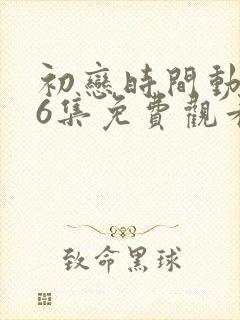 初戀時間動
6集免費觀
致命黑球